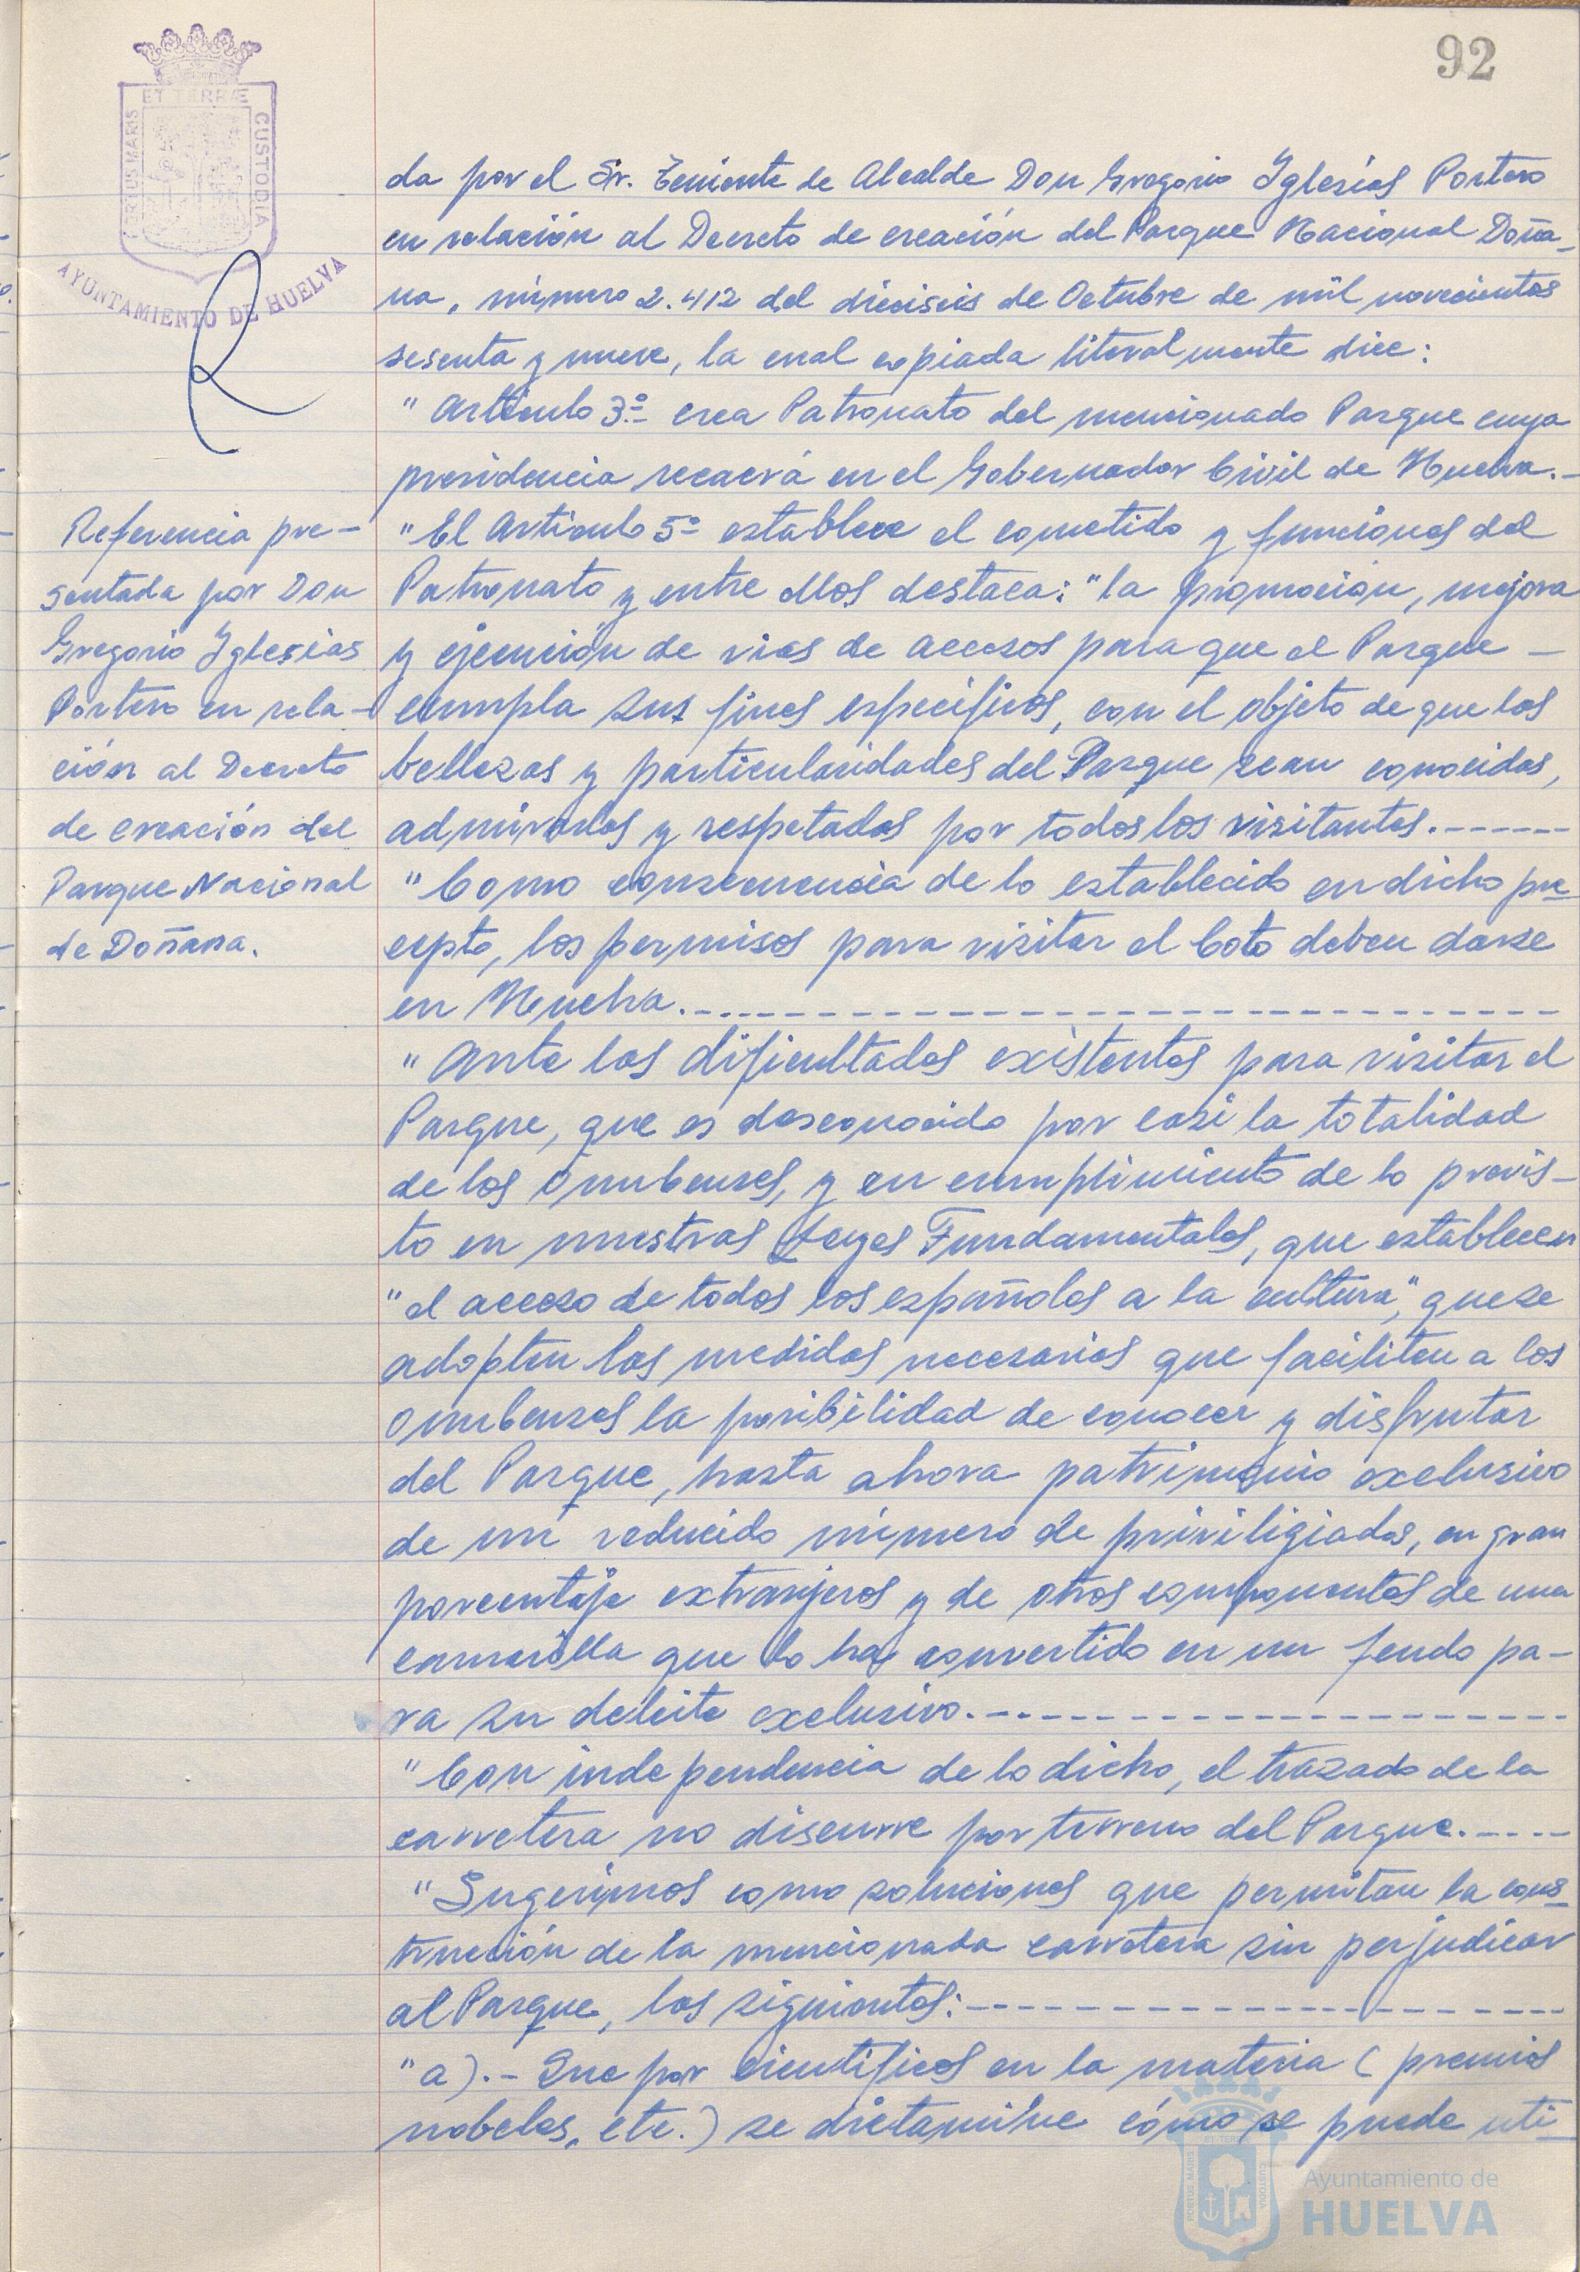 92
ET TERRÆ
PORTUS MARIS
CUSTODIA
AYUNTAMIENTO DE HUELVA
Referencia pre-
sentada por Don
Gregorio Iglesias
Portero en rela-
ción al Decreto
de creación del
Parque Nacional
de Doñana.
da por el Sr. Teniente de Alcalde Don Gregorio Iglesias Portero
en relación al Decreto de creación del Parque Nacional Doña-
na, número 2.412 del dieciseis de Octubre de mil novecientos
sesenta y nueve, la cual copiada literalmente dice:
"Artículo 3º- crea Patronato del mencionado Parque cuya
presidencia recaerá en el Gobernador Civil de Huelva.-
"El Artículo 5º establece el cometido y funciones del
Patronato y entre ellos destaca: "la promoción, mejora
y ejecución de vias de accesos para que el Parque -
cumpla sus fines específicos, con el objeto de que las
bellezas y particularidades del Parque sean conocidas,
admiradas y respetadas por todos los visitantes.------
"Como consecuencia de lo establecido en dicho pre-
cepto, los permisos para visitar el Coto deben darse
en Huelva.------------------------------
"Ante las dificultades existentes para visitar el
Parque, que es desconocido por casi la totalidad
de los Onubenses, y en cumplimiento de lo previs-
to en nuestras Leyes Fundamentales, que establecen
"el acceso de todos los españoles a la cultura", que se
adopten las medidas necesarias que faciliten a los
Onubenses la posibilidad de conocer y disfrutar
del Parque, hasta ahora patrimonio exclusivo
de un reducido número de priviligiados, en gran
porcentaje extranjeros y de otros componentes de una
camarilla que lo ha convertido en un feudo pa-
ra su deleite exclusivo.---------------------
"Con independencia de lo dicho, el trazado de la
carretera no discurre por terreno del Parque.-----
"Sugerimos como soluciones que permitan la cons-
trucción de la mencionada carretera sin perjudicar
al Parque, las siguientes:---------------------
"a).- Que por científicos en la materia (premios
nobeles, etc.) se dictamine cómo se puede uti-
ET TERRÆ
PORTUS MARIS
CUSTODIA
Ayuntamiento de
HUELVA